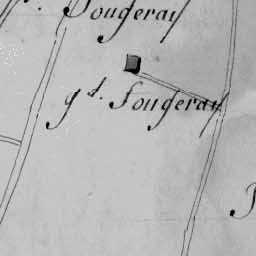 Fougeray
g.d Fougeray